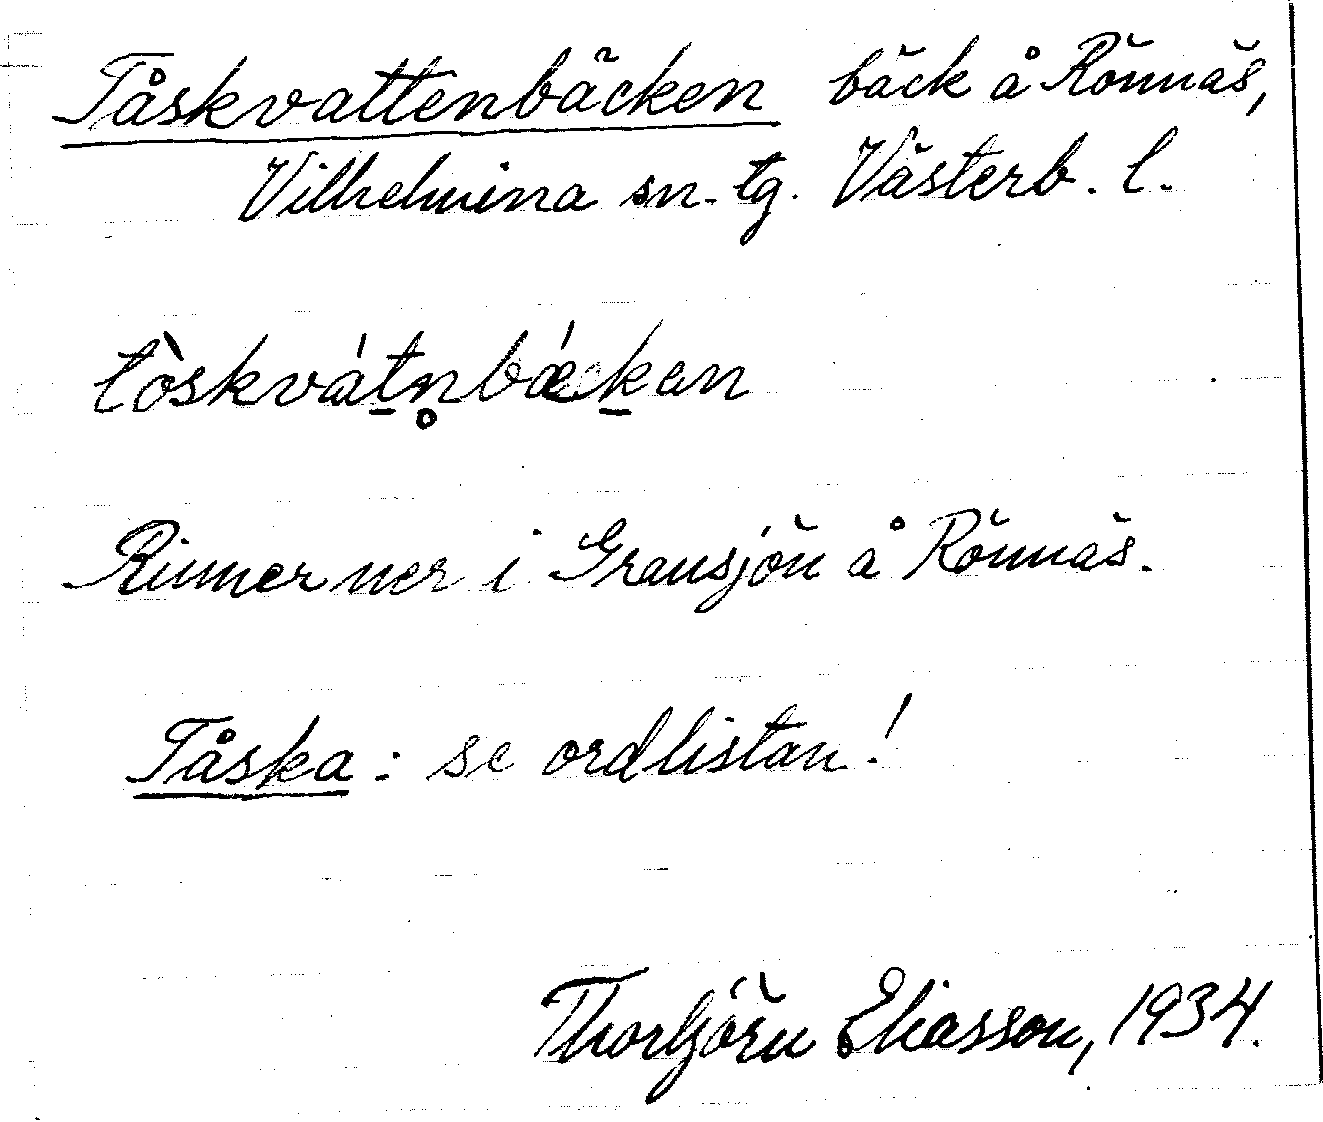 Tåskvattenbäcken bäck å Rönnäs,
Vilhelmina sn. tg. Västerb. l.
tòskvát̠n̥bǽk̠en
Rinner ner i Gransjön å Rönnäs.
Tåska: se ordlistan!
Thorbjörn Eliasson, 1934.